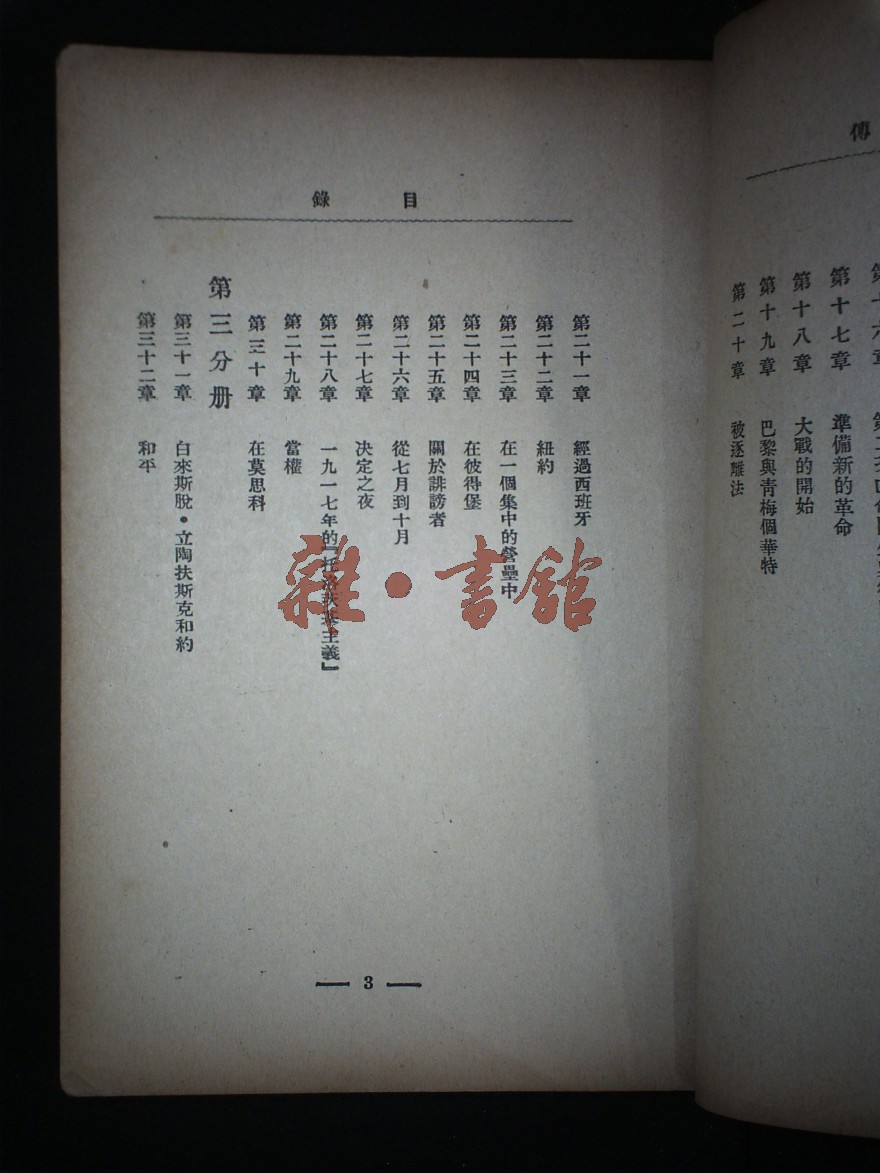 傳
第十七章 準備新的革命
第十八章 大戰的開始
第十九章 巴黎與青梅個華特
第二十章 被逐離法
目錄
第二十一章 經過西班牙
第二十二章 紐約
第二十三章 在一個集中的營壘中
第二十四章 在彼得堡
第二十五章 關於誹謗者
第二十六章 從七月到十月
第二十七章 決定之夜
第二十八章 一九一七年的『托洛茨基主義』
第二十九章 當權
第三十章 在莫思科
第三分册
第三十一章 白來斯脫•立陶扶斯克和約
第三十二章 和平
3
雜•書館